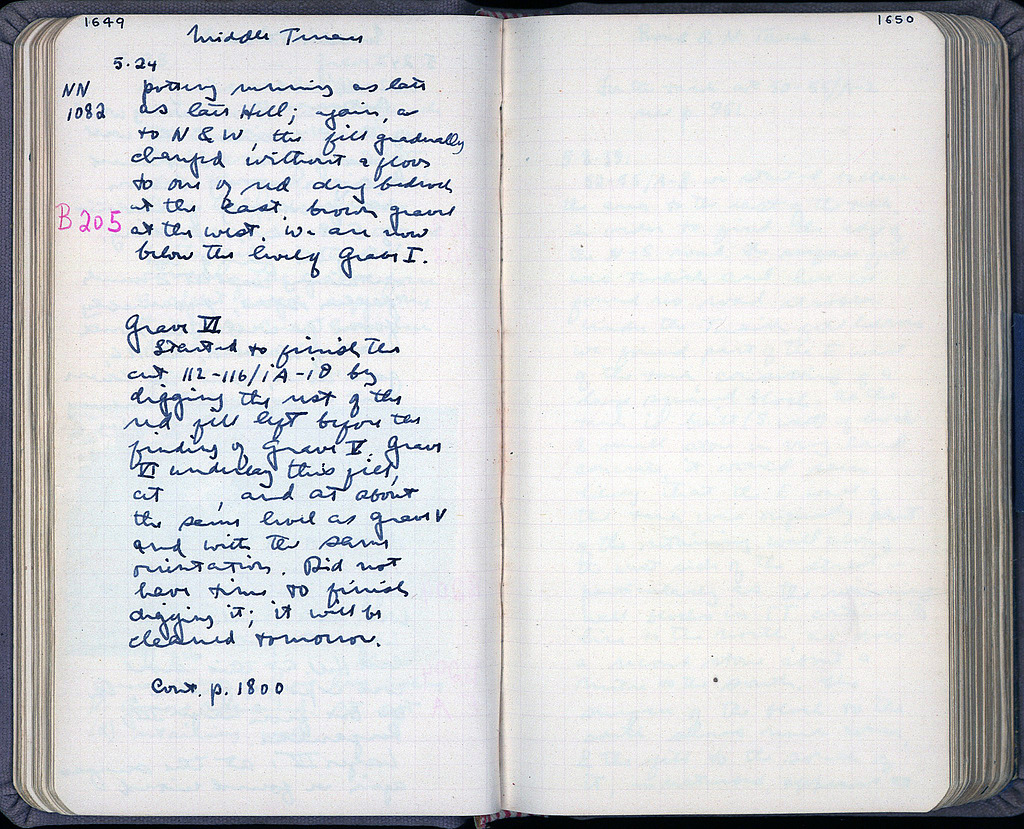 1649
1650
Middle Terrace
5.24
NN
1082
pottery running as late
as late Hell; again, as
to N & W, the fill gradually
changed without a floor
to one of red dug bedrock
at the East, brown gravel
B 205
at the west. We are now
below the level of Grave I.
Grave VI
Started to finish the
cut 112-116/iA-iD by
digging the rest of the
red fill left before the
finding of Grave V. Grave
VI underlay this fill,
at , and at about
the same level as grave V
and with the same
orientation. Did not
have time to finish
digging it; it will be
cleaned tomorrow.
Cont. p. 1800